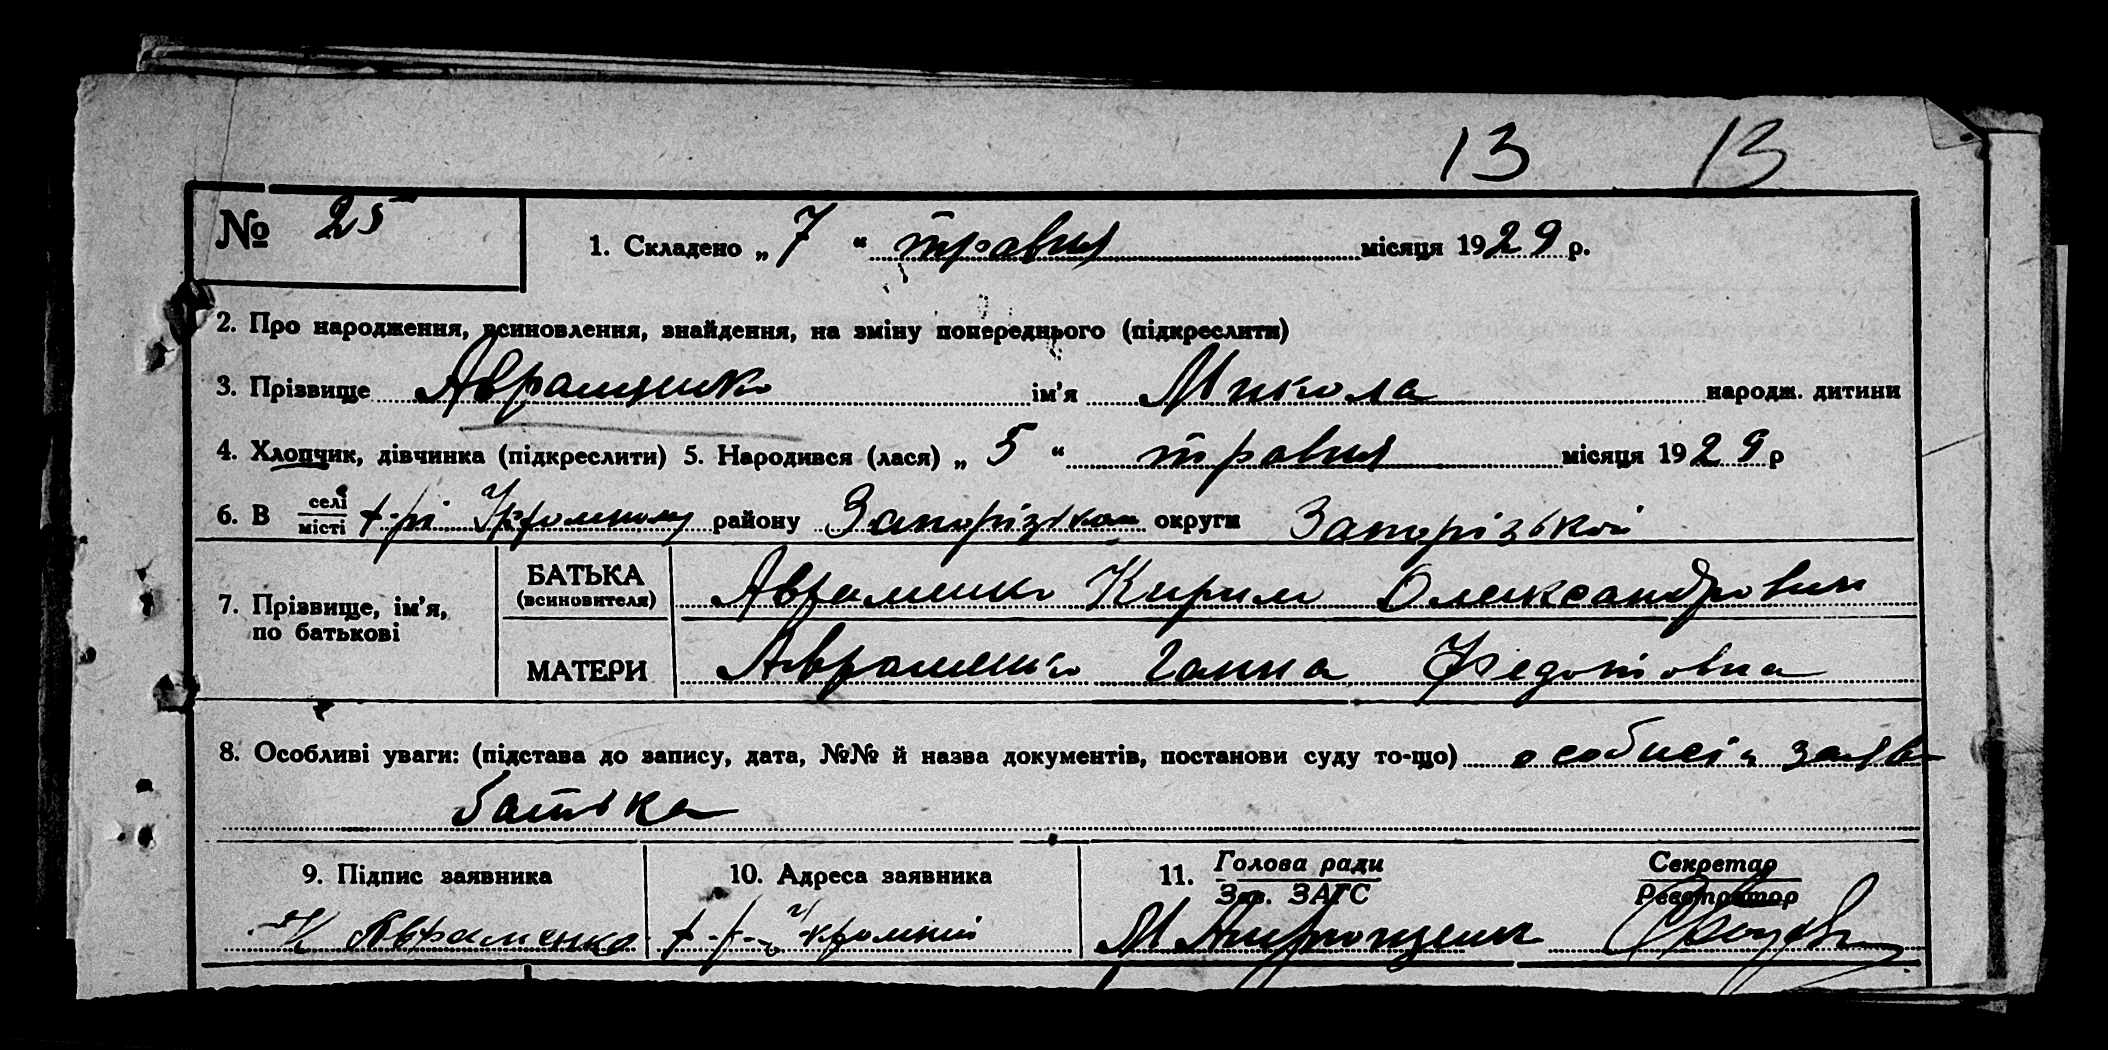 13 13
№ 25
1. Складено „ 7 “ травня місяця 1929 р.
2. Про народження, всиновлення, знайдення, на зміну попереднього (підкреслити)
3. Прізвище Авраменко ім’я Микола народж. дитини
4. Хлопчик, дівчинка (підкреслити) 5. Народився (лася) „ 5 “ травня місяця 1929 р
6. В селі
місті х-рі району Запорізького округи Запорізької
7. Прізвище, ім’я, по батькові
БАТЬКА (всиновителя) Авраменко Кирило Олександрович
МАТЕРИ Авраменко Ганна Федотовна
8. Особливі уваги: (підстава до запису, дата, №№ й назва документів, постанови суду то-що) особиста заява
батька
9. Підпис заявника 10. Адреса заявника 11. Голова ради
Зав. ЗАГС Секретар
Реєстратор
К Авраменко х-р